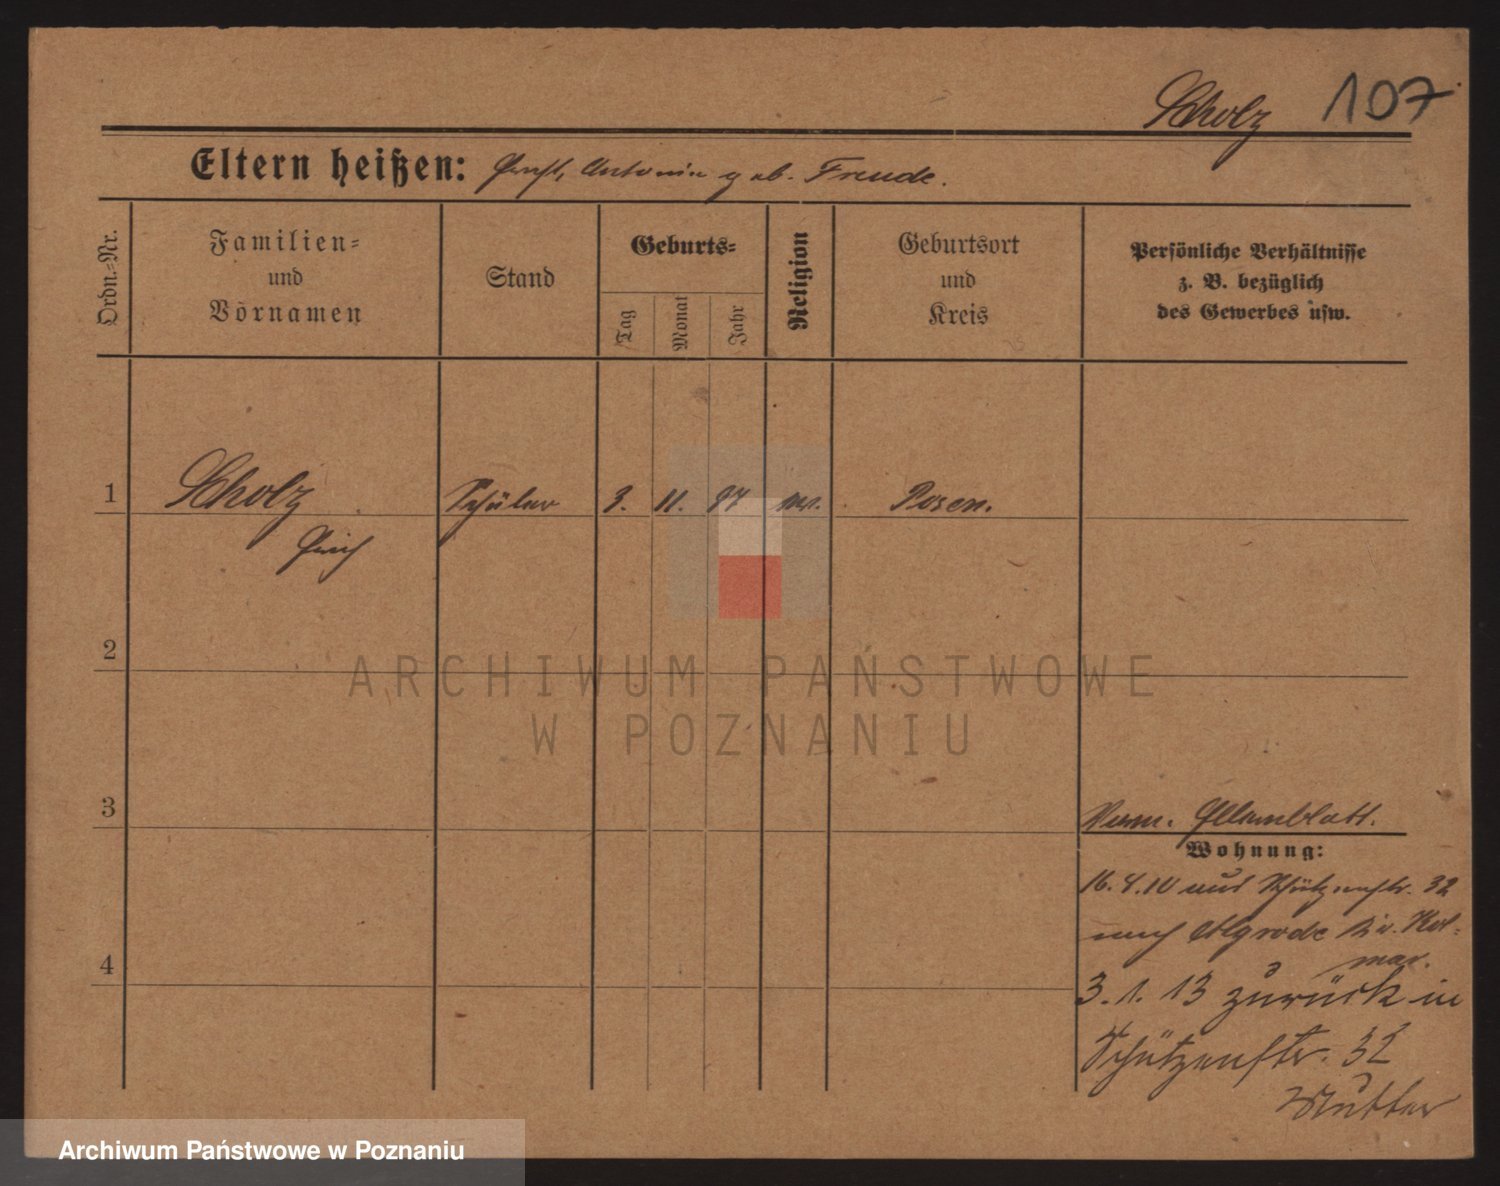 Scholz 107
Eltern heißen: Paul, Antonie geb. Freude.
Ordn.-Nr.
Familien-
und
Vornamen
Stand
Geburts-
Tag
Monat
Jahr
Religion
Geburtsort
und
Kreis
Persönliche Verhältnisse
z. B. bezüglich
des Gewerbes usw.
1 Scholz Schüler 3. 11. 97 Posen.
Erich
2
ARCHIWUM PAŃSTWOWE
W POZNANIU
3
Wohnung:
16.4.10 aus Schützenstr. 32
nach Algrode Kr. Kol-
mar.
4
3.1.13 zurück in
Schützenstr. 32
Mutter
Archiwum Państwowe w Poznaniu